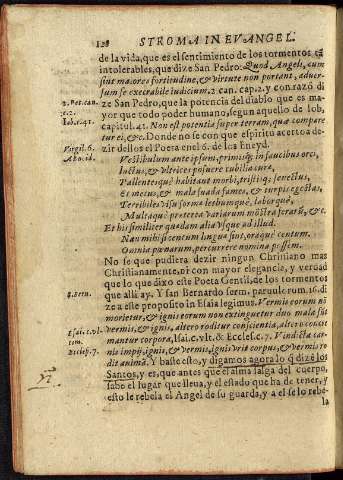 128 STROMA IN EVANGEL.
de la vida, que es el sentimiento de los tormentos tã
intolerables, que dize San Pedro: Quod Angeli, cum
sint maiores fortitudine, & virtute non portant, aduer-
sum se execrabile iudicium. 2 can. cap. 2. y con razõ di
2. Pet. can.
2. c. 2.
Iob. c. 41.
ze San Pedro, que la potencia del diablo que es ma-
yor que todo poder humano, segun aquello de Iob,
capitul. 41. Non est potentia super terram, quæ compare
tur ei, & c. Donde no se con que espiritu acertoa de-
Virgil. 6.
zir dellos el Poeta en el 6. de los Eneyd.
Vestibulum ante ipsum, primisq; in faucibus orci,
luctus, & vltrices posuere cubilia cura,
Pallentesque habitant morbi, tristisq; senectus,
Et metus, & mala suada fames, & turpis egestas,
Terribiles visu formæ lethumquè, laborquè,
Multaque præterea variarum mõstra ferarũ, & c.
Et his similiter quædam alia vsque ad illud.
Nan mihi si centum linguæ sint, oraquè centum.
Omnia pœnarum, percurrere nomina possem.
No se que pudiera dezir ningun Chriniano mas
Christianamente, ni con mayor elegancia, y verdad
que lo que dixo este Poeta Gentil, de los tormentos
S. Bern.
que alli ay. Y san Bernardo serm. paruulc rum. 16. di
ze a este proposito in Esaia legimus. Vermis eorum nõ
morietur, & ignis eorum non extinguetur duo mala sũt
Esai. c. vl-
tim.
vermis, & ignis, altero roditur conscientia, altero concre
mantur corpora, Isai. c. vlt. & Ecclesi. c. 7. Vindicta car-
Ecclesi. 7.
nis impij, ignis, & vermis, ignis vrit corpus, & vermis ro
dit animã. Y baste esto, y digamos agora lo q̃ dizẽ los
Santos, y es, que antes que el alma salga del cuerpo,
sabe el lugar que lleua, y el estado que ha de tener, y
esto le rebela el Angel de su guarda, y a el se lo rebe-
la